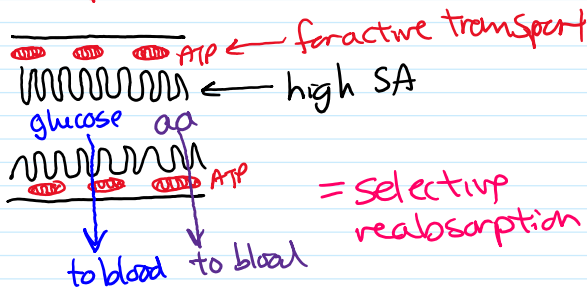 ATP for active transport
high SA
glucose aa
ATP
= selective
reabsorption
to blood to blood